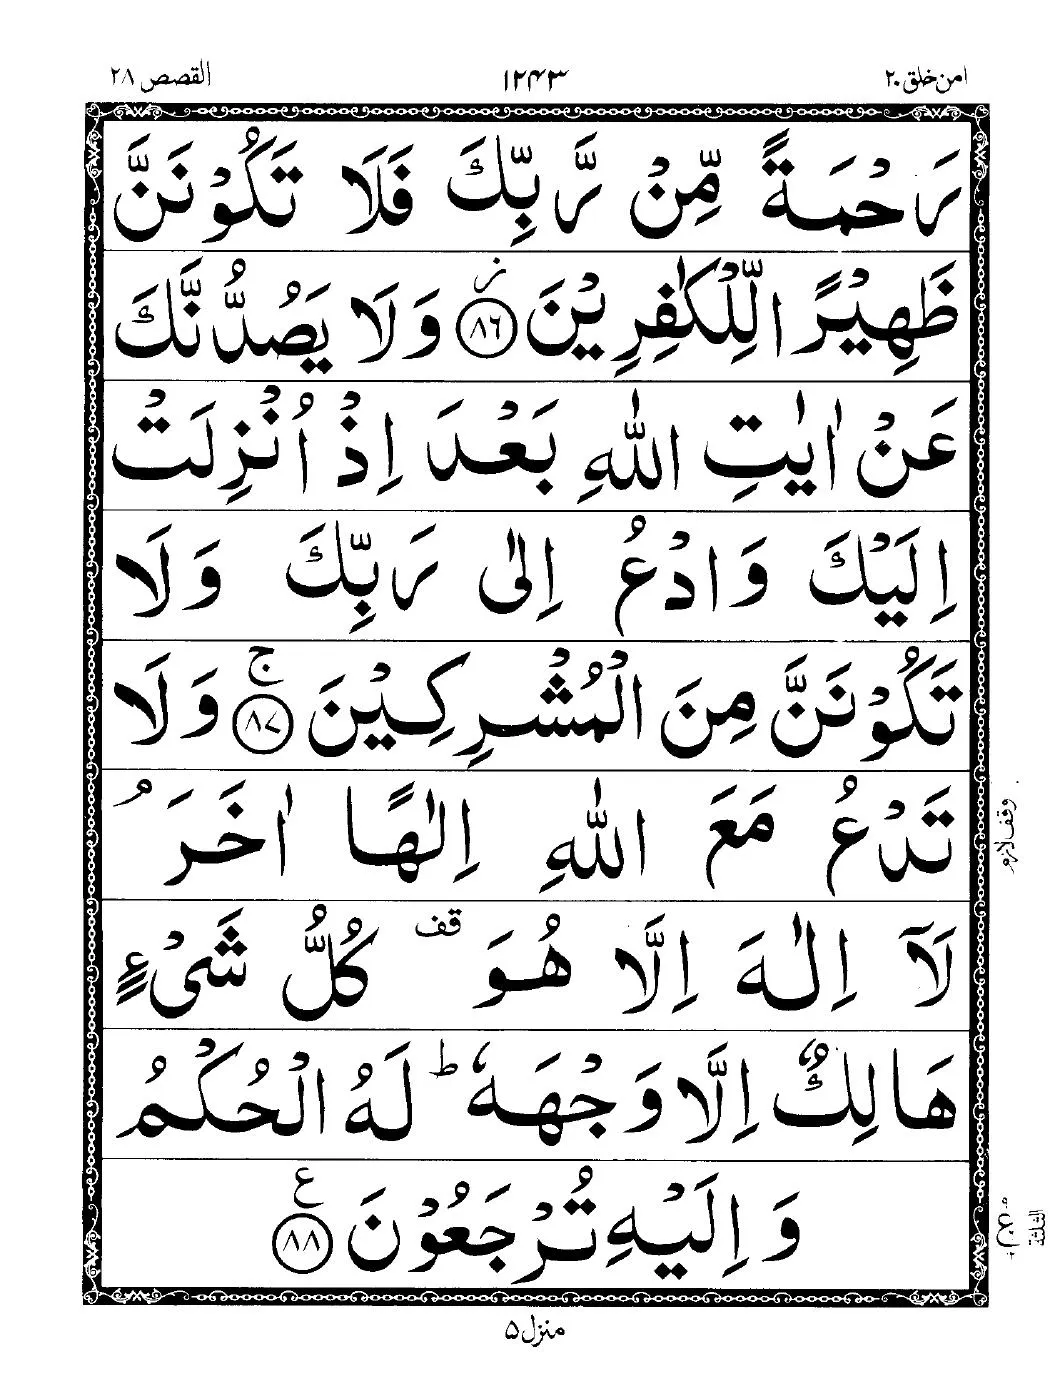 امن خلق ۲۰ ۱۲۴۳ القصص ۲۸
رَحْمَةً مِّنْ رَّبِّكَ فَلَا تَكُوْنَنَّ
ظَهِيْرًا لِّلْكٰفِرِيْنَ ۸۶ ز وَلَا يَصُدُّنَّكَ
عَنْ اٰيٰتِ اللّٰهِ بَعْدَ اِذْ اُنْزِلَتْ
اِلَيْكَ وَادْعُ اِلٰى رَبِّكَ وَلَا
تَكُوْنَنَّ مِنَ الْمُشْرِكِيْنَ ۸۷ ج وَلَا
تَدْعُ مَعَ اللّٰهِ اِلٰهًا اٰخَرَ ۘ
لَاۤ اِلٰهَ اِلَّا هُوَ قف كُلُّ شَيْءٍ
هَالِكٌ اِلَّا وَجْهَهٗ ط لَهُ الْحُكْمُ
وَاِلَيْهِ تُرْجَعُوْنَ ۸۸ ع
وقف لازم
الثلثة
منزل ۵